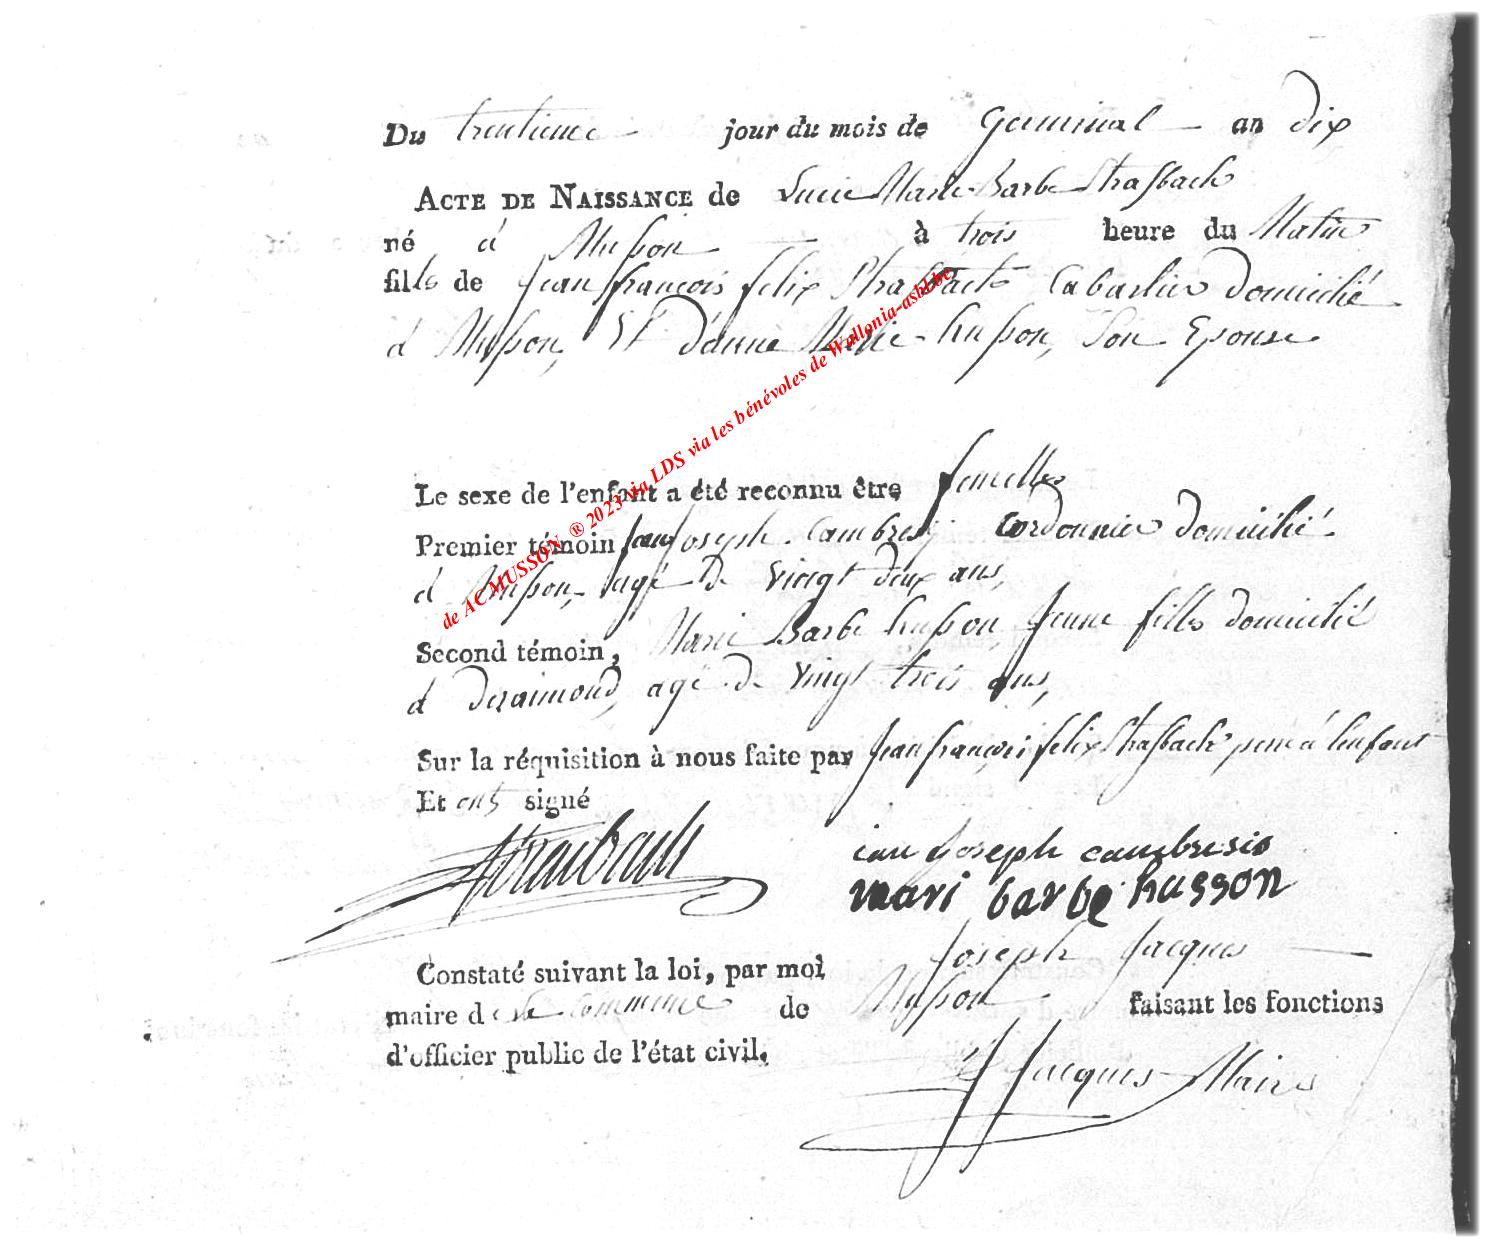 Du trentieme jour du mois de Germinal an dix
ACTE DE NAISSANCE de Lucie Marie Barbe Strasback
né à Musson à trois heure du Matin
fille de Jean françois felix Strasback Cabartier domicilié
à Musson, Et d'anne Marie husson, Son Epouse
Le sexe de l'enfant a été reconnu être femelle
Premier témoin, Jean Joseph Cambresy cordonnier domicilié
à Musson, agé De Vingt deux ans,
Second témoin, Marie Barbe husson Jeune fille domicilié
à agé de Vingt trois ans,
Sur la réquisition à nous faite par Jean françois felix Strasback pere à lenfant
Et ont signé
Strasback
ian Joseph cambresis
mari barbe husson
Constaté suivant la loi, par moi Joseph Jacques
maire de la Commune de Musson faisant les fonctions
d'officier public de l'état civil.
J Jacques Maire
de AC MUSSON ® 2023 via LDS via les bénévoles de Wallonia-asbl.be